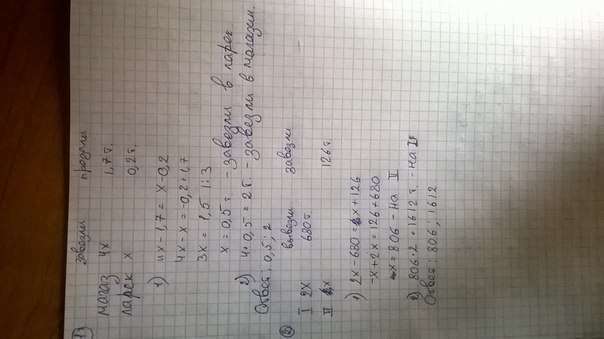 1)
завезли продали
магаз 4x 1,7т.
ларек x 0,2т.
1) 4x-1,7 = x-0,2
4x-x = -0,2+1,7
3x = 1,5 |:3
x = 0,5т. - завезли в ларек
2) 4*0,5 = 2т. - завезли в магазин.
Ответ: 0,5; 2
②
вывезли завезли
I 2x 680т
II x 126т.
1) 2x-680 = x+126
-x+2x = 126+680
x = 806 - на II
2) 806*2 = 1612т. - на I
Ответ: 806; 1612